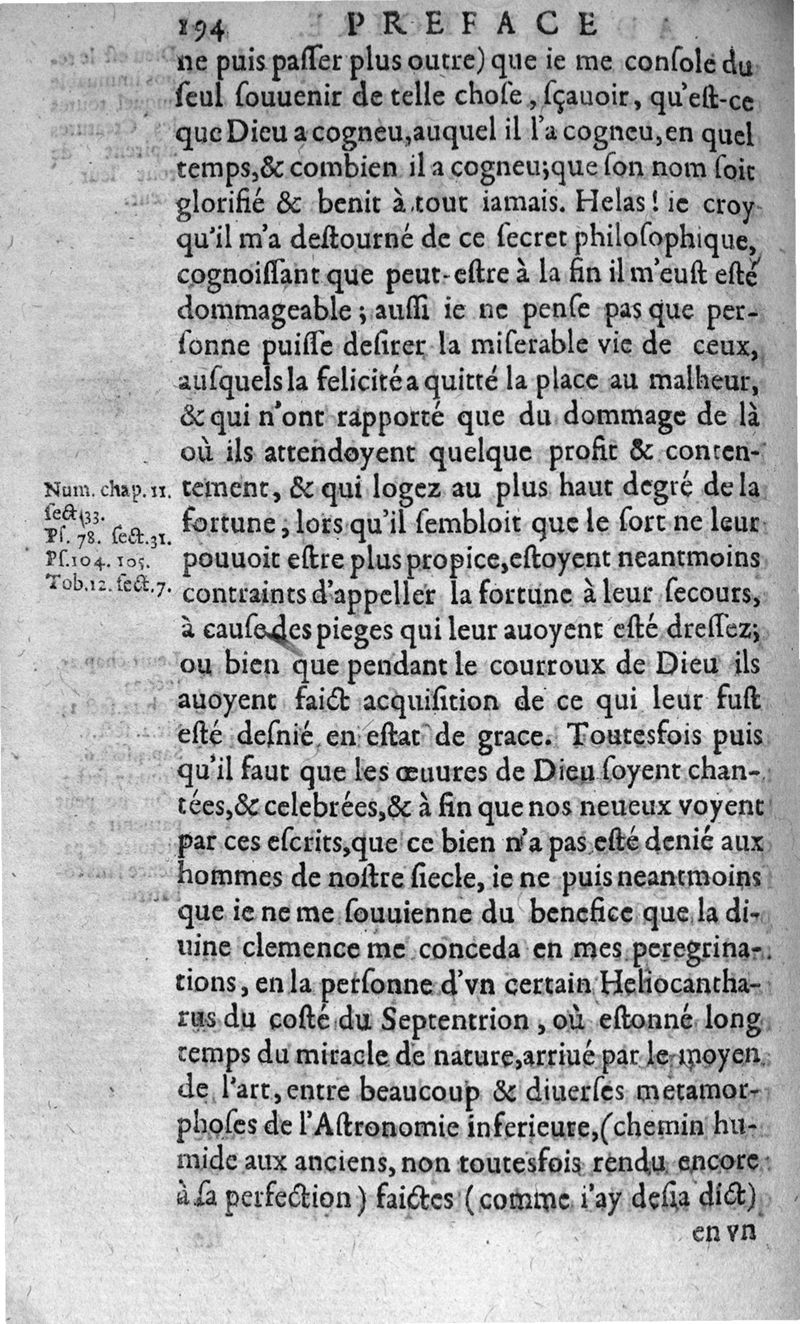 194 PREFACE
ne puis paſſer plus outre) que ie me conſole du
ſeul ſouuenir de telle choſe, ſçauoir, qu'eſt-ce
que Dieu a cogneu, auquel il l'a cogneu, en quel
temps, & combien il a cogneu; que ſon nom ſoit
glorifié & benit à tout iamais. Helas! ie croy
qu'il m'a deſtourné de ce ſecret philoſophique,
cognoiſſant que peut-eſtre à la fin il m'euſt eſté
dommageable; auſſi ie ne penſe pas que per-
ſonne puiſſe deſirer la miſerable vie de ceux,
auſquels la felicité a quitté la place au malheur,
& qui n'ont rapporté que du dommage de là
où ils attendoyent quelque profit & conten-
tement, & qui logez au plus haut degré de la
fortune, lors qu'il ſembloit que le ſort ne leur
pouuoit eſtre plus propice, eſtoyent neantmoins
contraints d'appeller la fortune à leur ſecours,
à cauſe des pieges qui leur auoyent eſté dreſſez;
ou bien que pendant le courroux de Dieu ils
auoyent faict acquiſition de ce qui leur fuſt
eſté deſnié en eſtat de grace. Toutesfois puis
qu'il faut que les œuures de Dieu ſoyent chan-
tées, & celebrées, & à fin que nos neueux voyent
par ces eſcrits, que ce bien n'a pas eſté denié aux
hommes de noſtre ſiecle, ie ne puis neantmoins
que ie ne me ſouuienne du benefice que la di-
uine clemence me conceda en mes peregrina-
tions, en la perſonne d'vn certain Heliocantha-
rus du coſté du Septentrion, où eſtonné long
temps du miracle de nature, arriué par le moyen
de l'art, entre beaucoup & diuerſes metamor-
phoſes de l'Aſtronomie inferieure, (chemin hu-
mide aux anciens, non toutesfois rendu encore
à ſa perfection) faictes (comme i'ay deſia dict)
en vn
Num. chap. 11.
ſect. 33.
Pſ. 78. ſect. 31.
Pſ. 104. 105.
Tob. 12. ſect. 7.